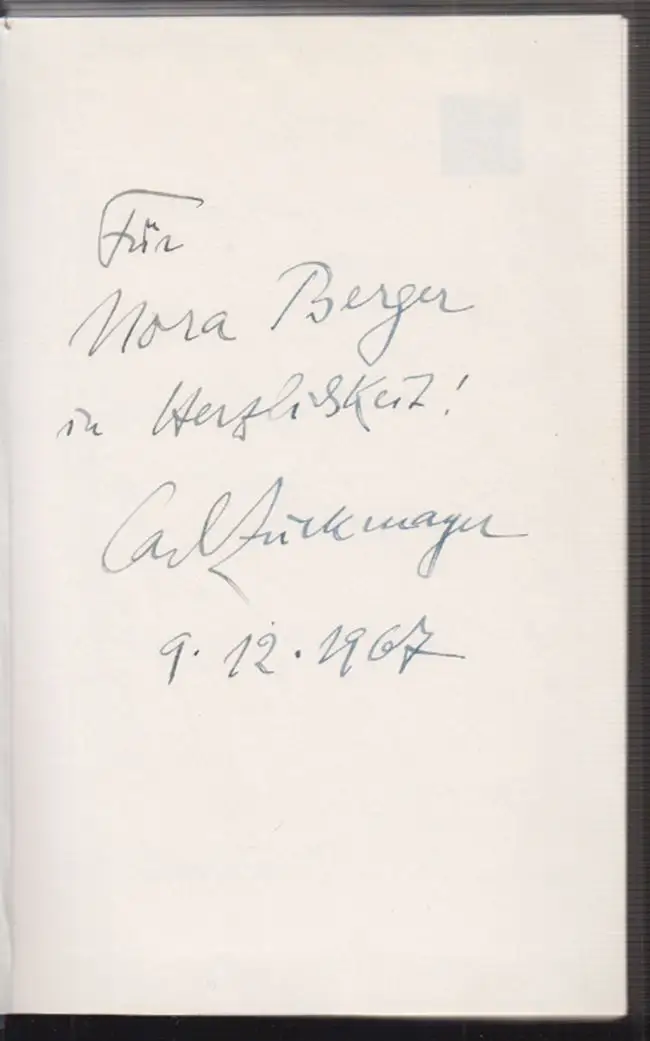 Für
Nora Berger
in Herzlichkeit!
Carl Zuckmayer
9.12.1967